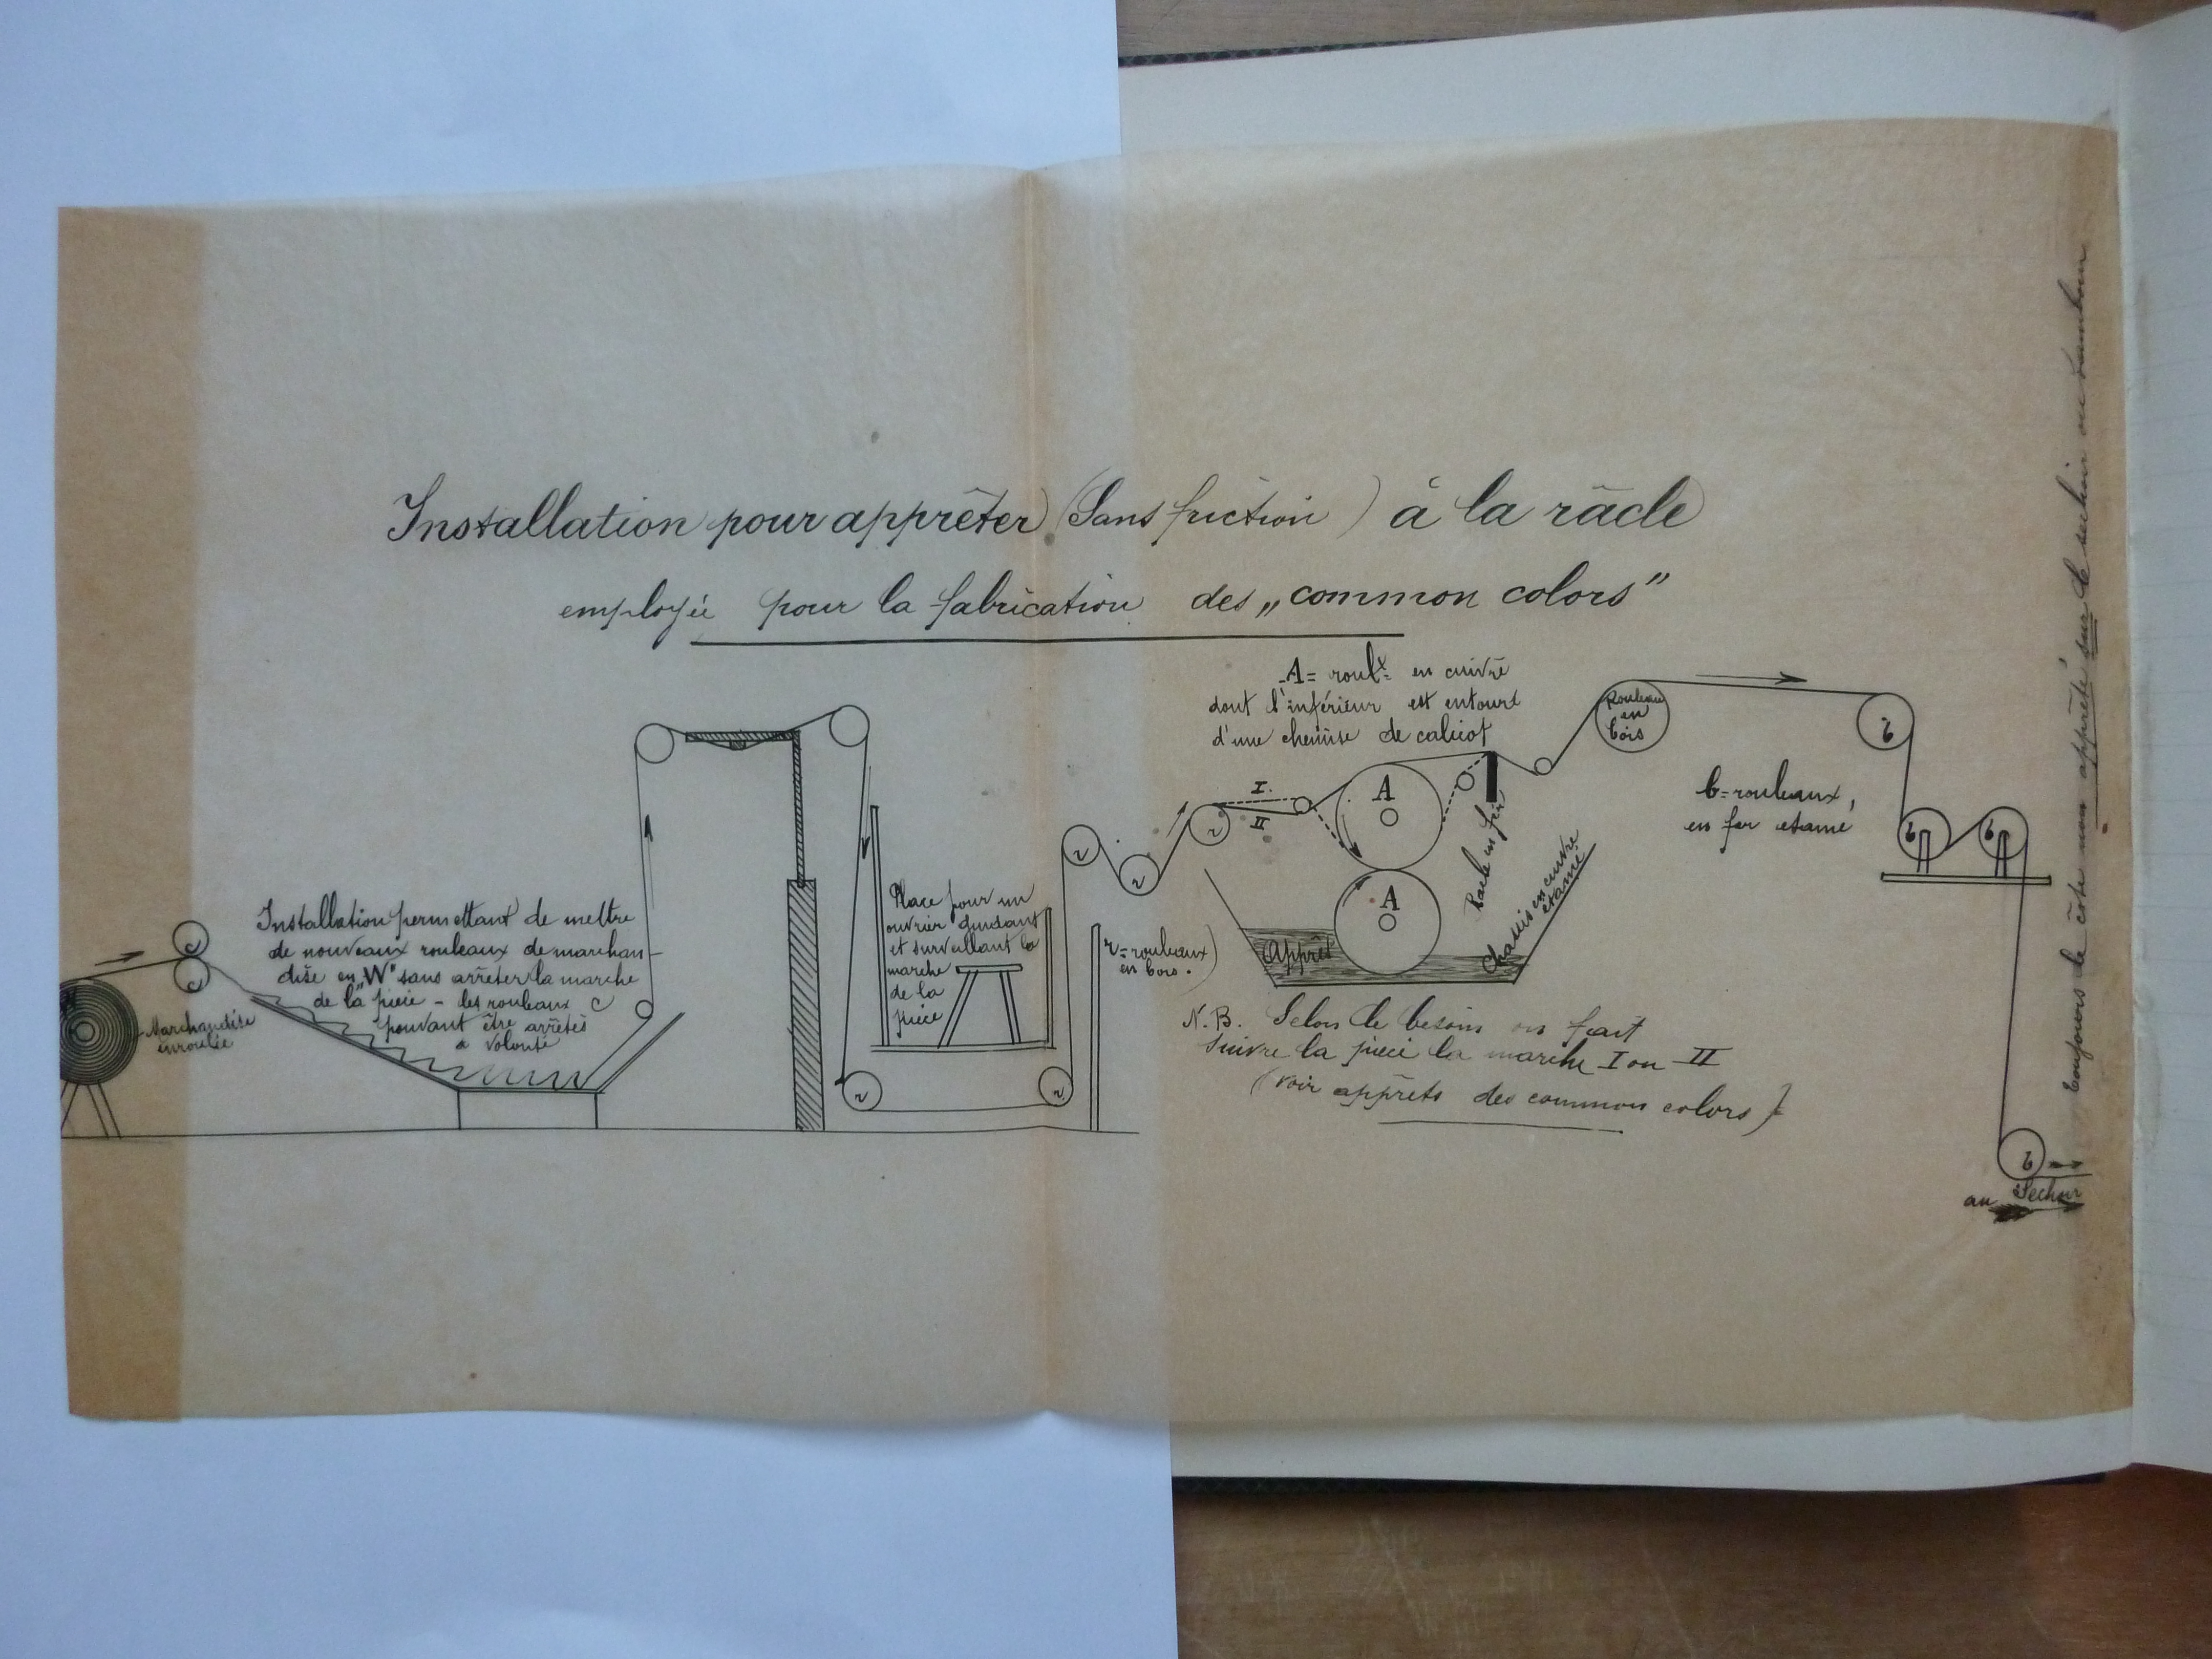 Installation pour apprêter (Sans friction) à la râcle
employée pour la fabrication des „common colors"
A = roulx en cuivre
dont l'inférieur est entouré
d'une chemise de calicot
Rouleau
en
bois
b
I.
II
A
b = rouleaux,
en fer etamé
b
b
r
r
r
Racle en fer
Chassis en cuivre
étamé
A
Apprêt
Place pour un
ouvrier guidant
et surveillant la
marche
de la
pièce
r = rouleaux
en bois.
Installation permettant de mettre
de nouveaux rouleaux de marchan-
dise en „W" sans arrêter la marche
de la pièce - les rouleaux C
pouvant être arrêtés
à volonté
C
C
Marchandise
enroulée
r
r
N.B. Selon le besoin on fait
suivre la pièce la marche I ou II
(voir apprêts des common colors)
b
au Sècheur
toujours le côté non apprêté sur le séchoir ou tambour